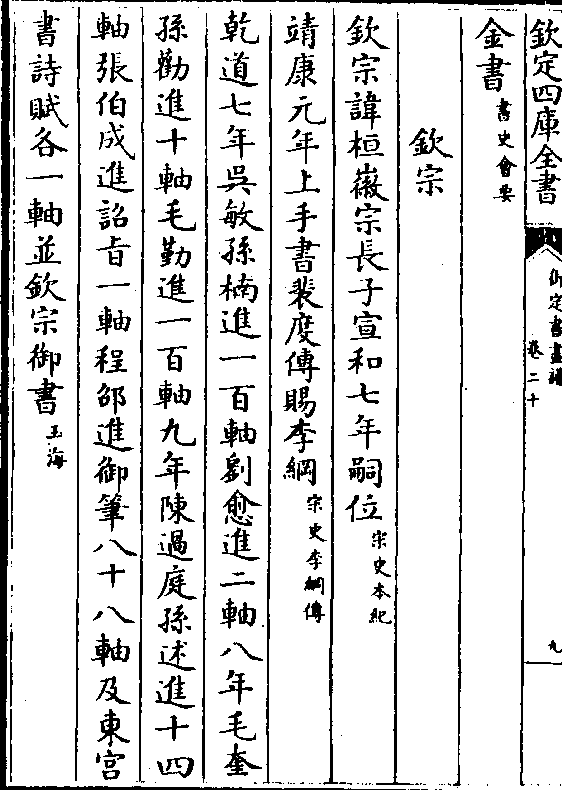 欽定四庫全書
御定書畫譜
卷二十
九
金書書史會要
欽宗
欽宗諱桓徽宗長子宣和七年嗣位宋史本紀
靖康元年上手書裴度傳賜李綱宋史李綱傳
乾道七年吳敏孫楠進一百軸劉愈進二軸八年毛奎
孫勸進十軸毛勤進一百軸九年陳過庭孫述進十四
軸張伯成進詔旨一軸程邵進御筆八十八軸及東宮
書詩賦各一軸並欽宗御書玉海